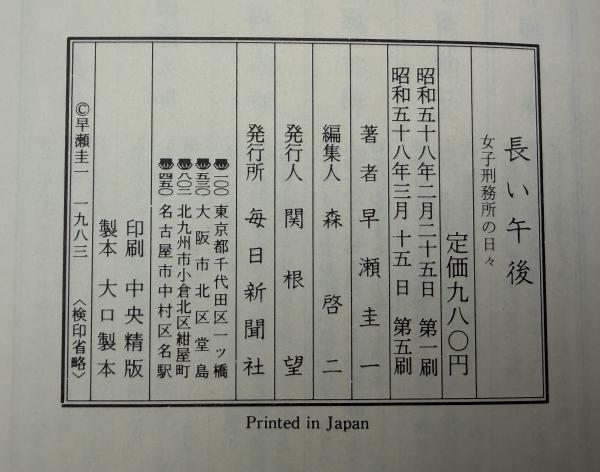 長い午後
女子刑務所の日々
定価九八〇円
昭和五十八年二月二十五日 第一刷
昭和五十八年三月十五日 第五刷
著者 早瀬圭一
編集人 森啓二
発行人 関根望
発行所 毎日新聞社
〒一〇〇 東京都千代田区一ツ橋
〒五三〇 大阪市北区堂島
〒八〇二 北九州市小倉北区紺屋町
〒四五〇 名古屋市中村区名駅
印刷 中央精版
製本 大口製本
©早瀬圭一 一九八三 〈検印省略〉
Printed in Japan